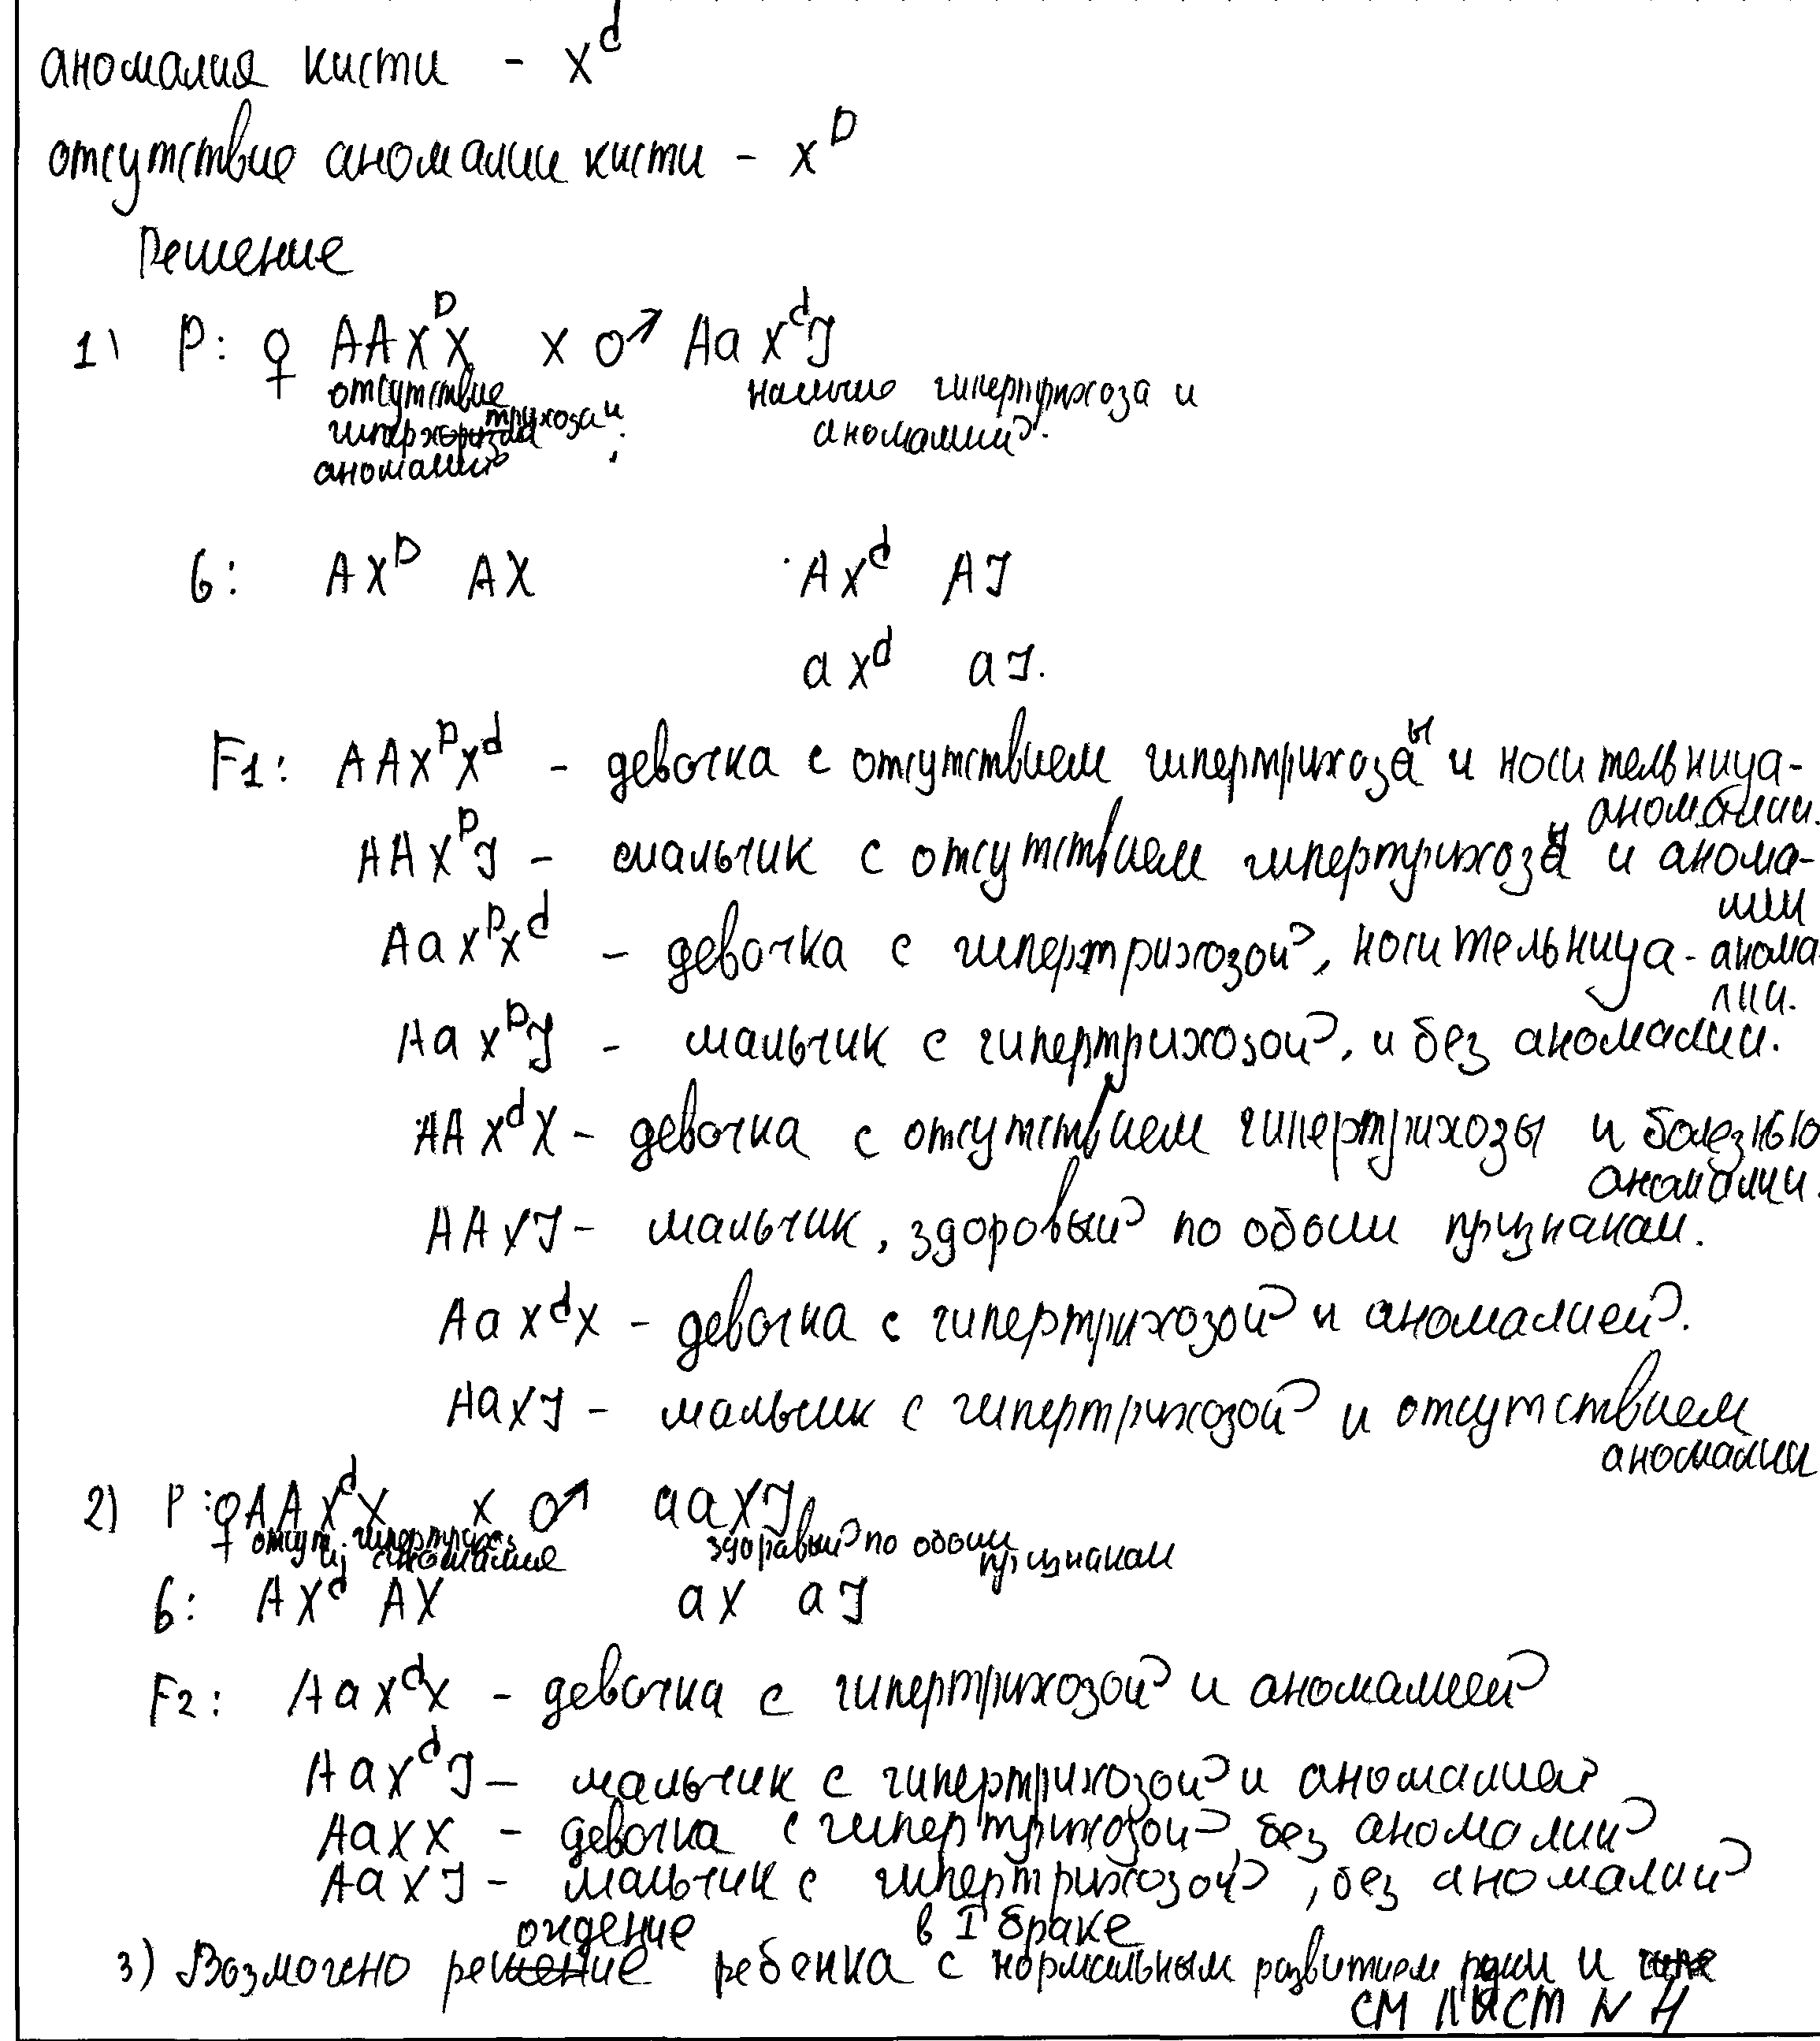 аномалия кисти - X^d
отсутствие аномалии кисти - X^D
Решение
1) P: ♀ AAX^DX x ♂ AaX^dJ
отсутствие гипертрихоза и аномалии; наличие гипертрихоза и аномалией.
G: AX^D AX AX^d AJ
aX^d aJ.
F1: AAX^DX^d - девочка с отсутствием гипертрихозы и носительница-аномалии.
AAX^DJ - мальчик с отсутствием гипертрихозы и аномалии
AaX^DX^d - девочка с гипертрихозой, носительница-аномалии.
AaX^DJ - мальчик с гипертрихозой, и без аномалии.
AAX^dX - девочка с отсутствием гипертрихозы и болезнью аномалии.
AAXJ - мальчик, здоровый по обоим признакам.
AaX^dX - девочка с гипертрихозой и аномалией.
AaXJ - мальчик с гипертрихозой и отсутствием аномалии
2) P: ♀ AAX^dX x ♂ aaXJ
отсут. гипертрихоз и аномалия здоравый по обоим признакам
G: AX^d AX aX aJ
F2: AaX^dX - девочка с гипертрихозой и аномалией
AaX^dJ - мальчик с гипертрихозой и аномалией
AaXX - девочка с гипертрихозой, без аномалий
AaXJ - мальчик с гипертрихозой, без аномалий
3) Возможно рождение ребенка в I браке с нормальным развитием руки и
СМ ЛИСТ N 4